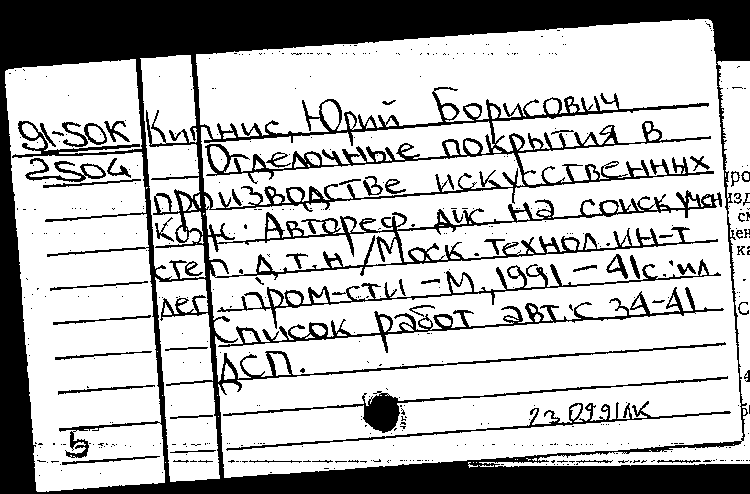 91-50К Кипнис, Юрий Борисович
2504 Отделочные покрытия в
производстве искусственных
кож: Автореф. дис. на соиск. учен
степ. д.т.н /Моск. технол. ин-т
лег. пром-сти -М., 1991. - 41с.:ил.
Список работ авт.: с. 34-41.
ДСП.